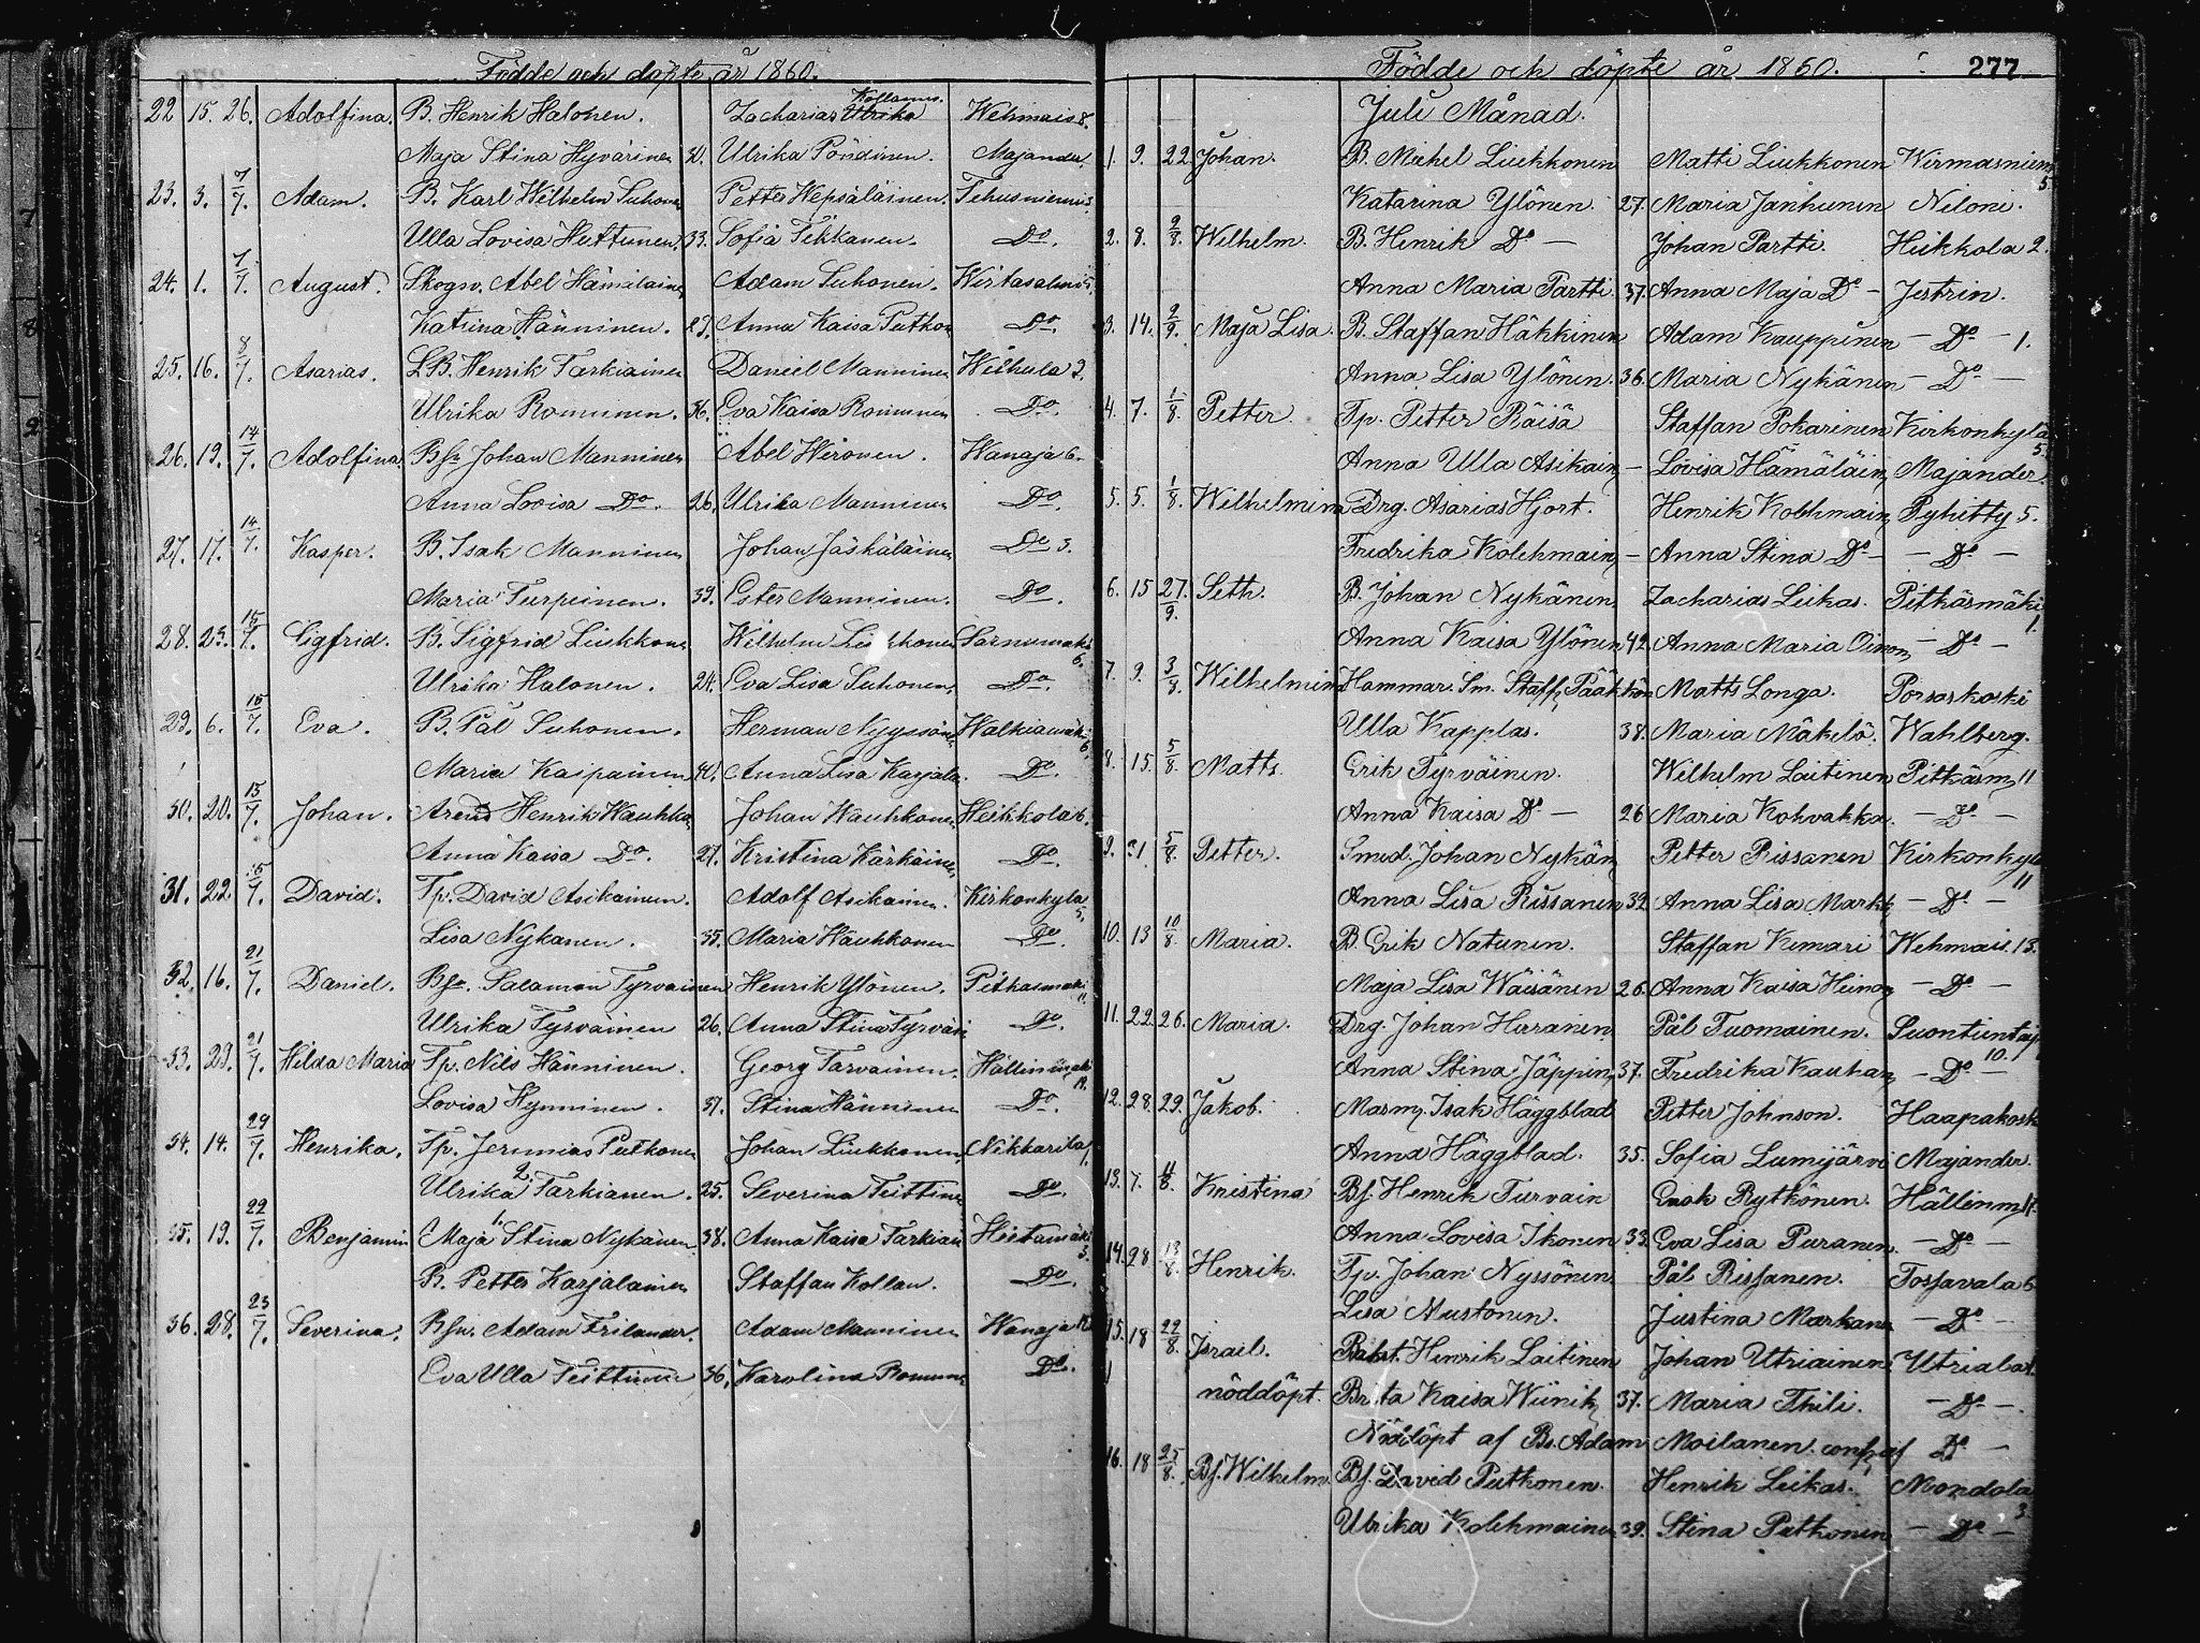 Födde och döpte år 1860.
22 15. 26. Adolfina. B. Henrik Halonen. Zacharias Ulrika Kollanus. Wehmais 8.
Maja Stina Hyvärinen 30. Ulrika Pöndinen. Majander.
23. 3. 1/7. Adam. B. Karl Wilhelm Suhonen Petter Wepsäläinen. Tehusniemi 3.
Ulla Lovisa Huttunen. 33. Sofia Tikkanen. Do.
24. 1. 1/7. August. Skogsv. Abel Hämäläinen Adam Suhonen. Wirtasalmi 5.
Katrina Hänninen. 29. Anna Kaisa Putkon Do.
25. 16. 8/7. Asarias. LB. Henrik Tarkiainen Daniel Manninen Weihula 2.
Ulrika Romunen. 36. Eva Kaisa Romunen Do.
26. 19. 14/7. Adolfina. Bsn Johan Manninen Abel Hironen. Wanaja 6.
Anna Lovisa Do. 26. Ulrika Manninen Do.
27. 17. 14/7. Kasper. B. Isak Manninen Johan Jäskäläinen Do 3.
Maria Turpeinen. 39. Ester Manninen. Do.
28. 23. 15/7. Sigfrid. B. Sigfrid Liukkonen Wilhelm Liukkonen Sarnumäki 6.
Ulrika Halonen. 24. Eva Lisa Suhonen. Do.
29. 6. 15/7. Eva. B. Pål Suhonen. Herman Nyyssönen Walkiamäki 6.
Maria Kaipainen 40. Anna Lisa Karjala. Do.
30. 20. 15/7. Johan. Arend Henrik Wauhkonen Johan Wauhkonen Heikkola 6.
Anna Kaisa Do. 27. Kristina Kärkäinen Do.
31. 22 15/7. David. Tp. David Asikainen. Adolf Asikainen. Kirkonkylä 5.
Lisa Nykänen. 35. Maria Wauhkonen Do.
32. 16. 21/7. Daniel. Bsn. Salamon Tyrväinen Henrik Ylönen. Pitkäsmäki 11.
Ulrika Tyrväinen 26. Anna Stina Tyrväi Do.
33. 29. 21/7. Hilda Maria Tp. Nils Hänninen. Georg Tarvainen. Hällinmäki 12.
Lovisa Hynninen. 37. Stina Hänninen Do.
34. 14. 29/7. Henrika. Tp. Jeremias Putkonen Johan Liukkonen. Nikkarila 1.
Ulrika 2. Tarkianen. 25. Severina Teittinen Do.
35. 19. 22/7. Benjamin Maja 1. Stina Nykänen. 38. Anna Kaisa Tarkiain Hietamäki 3.
B. Petter Karjalainen Staffan Kollan. Do.
36. 28. 23/7. Severina. Bsn. Adam Frilander. Adam Manninen Wanaja 12.
Eva Ulla Teittinen 36. Karolina Romunen Do.
Födde och döpte år 1860. 277
Juli Månad.
1. 9. 22. Johan. B. Mickel Liukkonen Matti Liukkonen Wirmasniemi 5.
Katarina Ylönen. 27. Maria Janhunen Niloni.
2. 8. 2/8. Wilhelm. B. Henrik Do — Johan Partti. Heikkola 2.
Anna Maria Partti. 37. Anna Maja Do — Jestrin.
3. 14. 2/9. Maja Lisa. B. Staffan Häkkinen Adam Kauppinen — Do — 1.
Anna Lisa Ylönen. 36. Maria Nykänen — Do —
4. 7. 1/8. Petter. Tp. Petter Räisä Staffan Pokarinen Kirkonkylä 5.
Anna Ulla Asikain — Lovisa Hämäläin Majander.
5. 5. 1/8. Wilhelmina Drg. Asarias Hjort. Henrik Kolehmain Pyhitty 5.
Fredrika Kolehmain — Anna Stina Do — — Do —
6. 15 27/9. Seth. B. Johan Nykänen. Zacharias Leikas. Pitkäsmäki 1.
Anna Kaisa Ylönen 42. Anna Maria Oinon — Do —
7. 9. 3/8. Wilhelmina Hammar. Sm. Staff. Pääkkön Matts Longa. Porsaskoski
Ulla Kapplas. 38. Maria Mäkelä. Wahlberg.
8. 15. 5/8. Matts. Erik Tyrväinen. Wilhelm Laitinen Pitkäsm 11
Anna Kaisa Do — 26 Maria Kohvakka. — Do —
9. 31. 5/8. Petter. Smed. Johan Nykän Petter Rissanen Kirkonkylä 11
Anna Lisa Rissanen 32. Anna Lisa Markk — Do —
10. 13 10/8. Maria. B. Erik Natunen. Staffan Kemari Wehmais. 13.
Maja Lisa Wäisänen 26. Anna Kaisa Heinon — Do —
11. 22. 26. Maria. Drg. Johan Hirsanen. Pål Tuomainen. Suontientaip 10.
Anna Stina Jäppin 37. Fredrika Kauhan — Do —
12. 28. 29. Jakob. Masm. Isak Häggblad Petter Johnson. Haapakoski
Anna Häggblad. 35. Sofia Lumijärvi Majander.
13. 7. 11/8. Kristina Bf. Henrik Turvain Enok Rytkönen. Hällinm 11.
Anna Lovisa Ikonen 33. Eva Lisa Puranen. — Do —
14. 28 13/8. Henrik. Tp. Johan Nyssönen. Pål Rissanen. Tossavala 6
Lisa Mustonen. Justina Markanen — Do —
15. 18 22/8. Israel. Henrik Laitinen Johan Utriainen Utriala 1.
nöddöpt. Brita Kaisa Wiinik 37. Maria Thili. — Do —
Nöddöpt af Bs. Adam Moilanen. conf. af Do —
16. 18 25/8. Bf. Wilhelm. Bf. David Putkonen. Henrik Leikas. Mondola 3
Ulrika Kolehmainen 39. Stina Putkonen — Do —